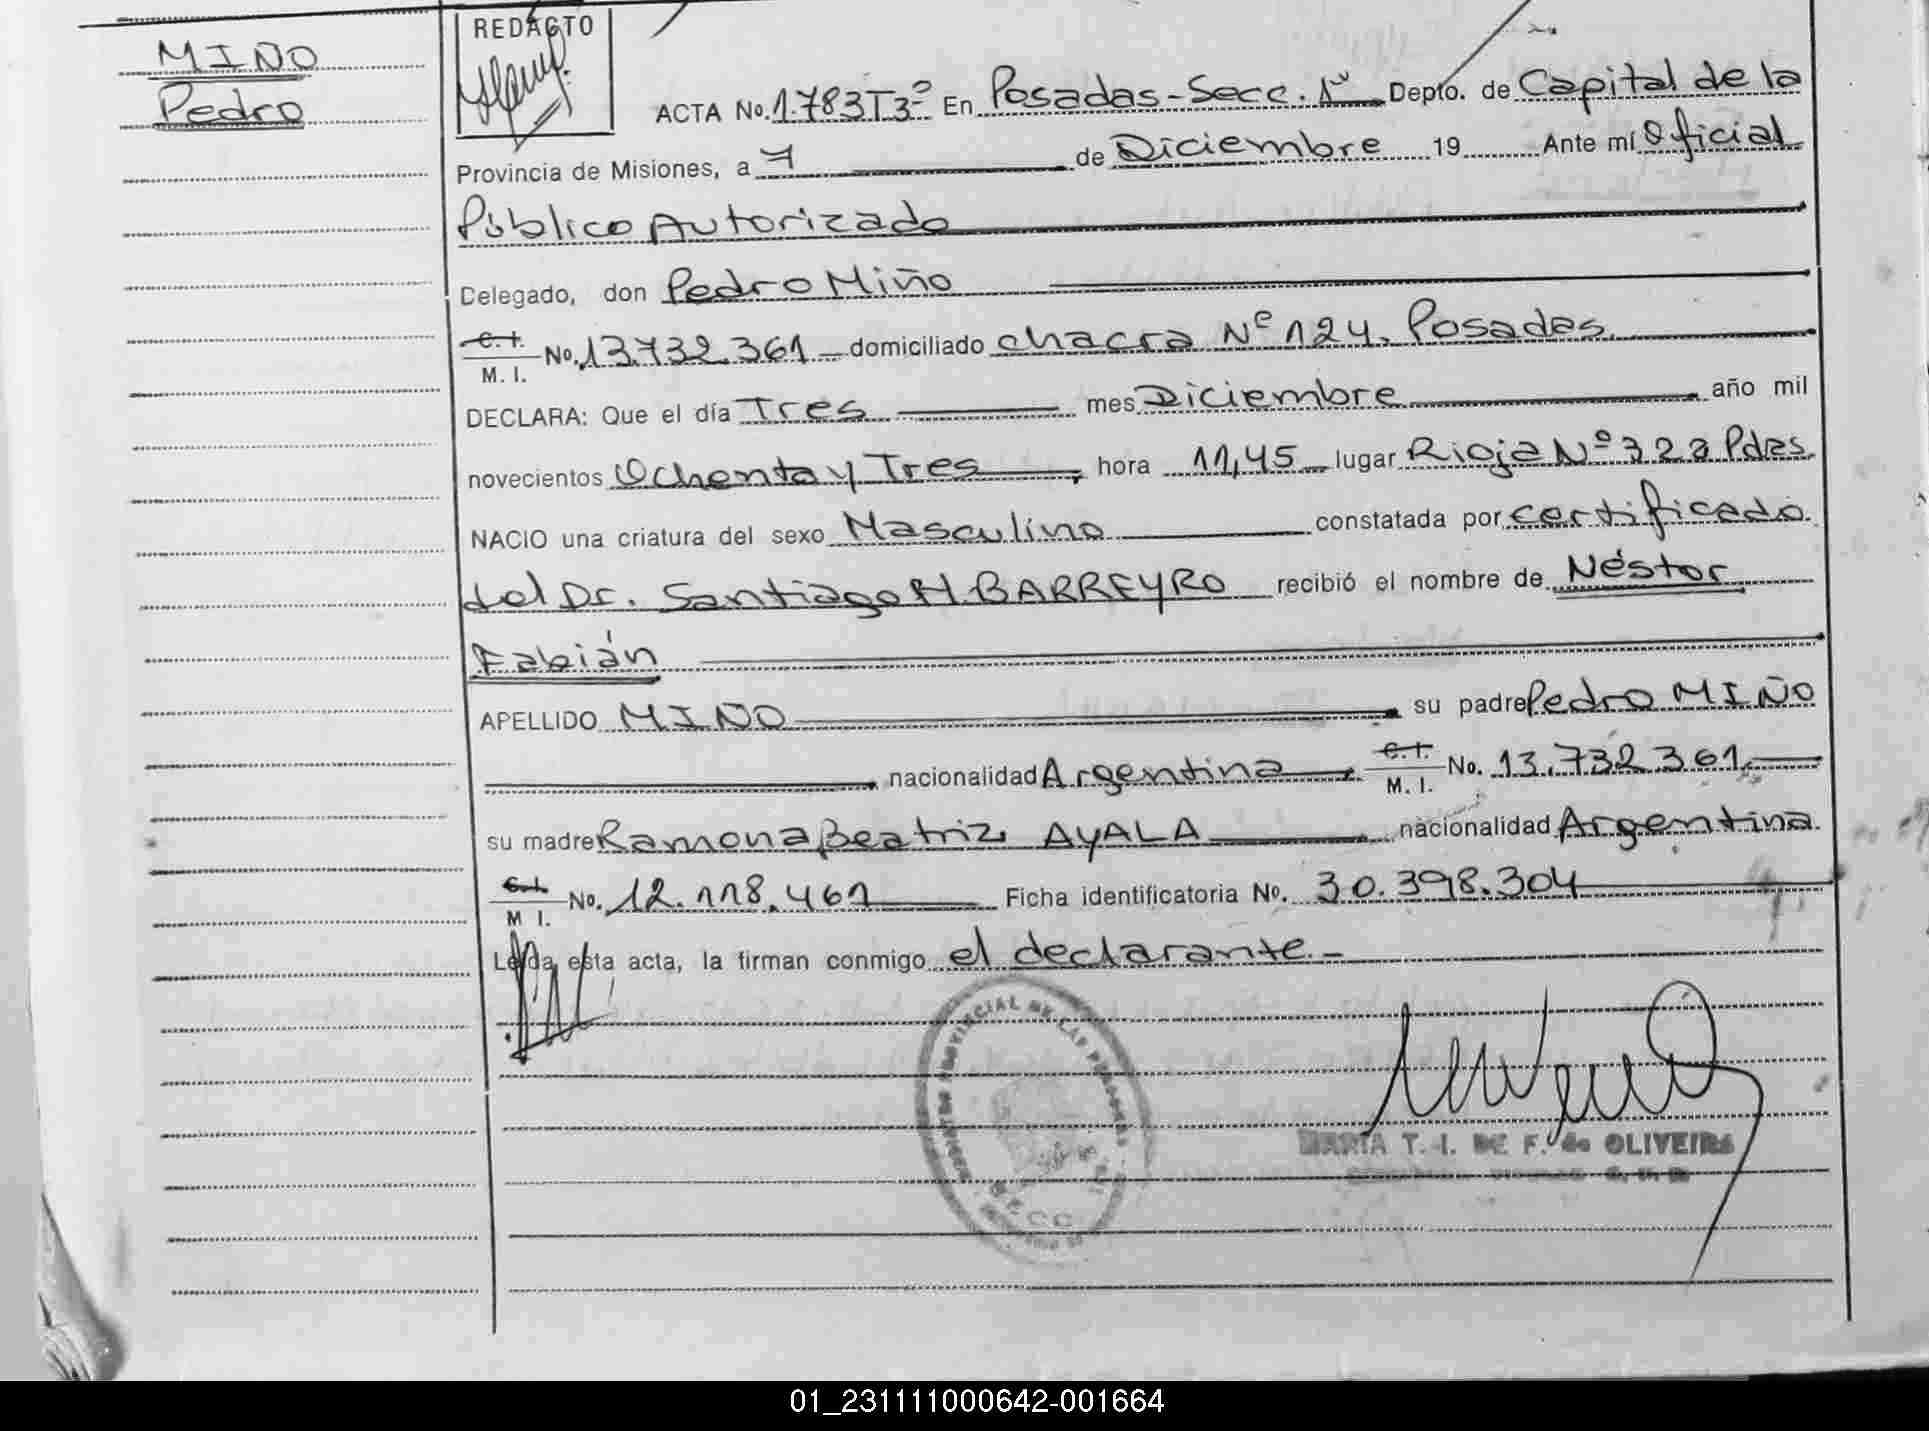 MIÑO
Pedro
REDACTO
ACTA No. 1.783 T3º En Posadas - Secc. 1ª Depto. de Capital de la
Provincia de Misiones, a 7 de Diciembre 19 Ante mí Oficial
Público Autorizado
Delegado, don Pedro Miño
C. I.
M. I. No. 13.732.361 domiciliado chacra Nº 124, Posadas
DECLARA: Que el día Tres mes Diciembre año mil
novecientos Ochenta y Tres, hora 11,45 lugar Rioja Nº Pdas.
NACIO una criatura del sexo Masculino constatada por certificado
del Dr. Santiago H. BARREYRO recibió el nombre de Néstor
Fabián
APELLIDO MIÑO su padre Pedro MIÑO
nacionalidad Argentina, C. I.
M. I. No. 13.732.361
su madre Ramona Beatriz AYALA nacionalidad Argentina.
C. I.
M I. No. 12.118.461 Ficha identificatoria No. 30.398.304
Leída esta acta, la firman conmigo el declarante.-
PROVINCIAL DE LAS PERSONAS
MARIA T. I. DE F. de OLIVEIRA
01_231111000642-001664